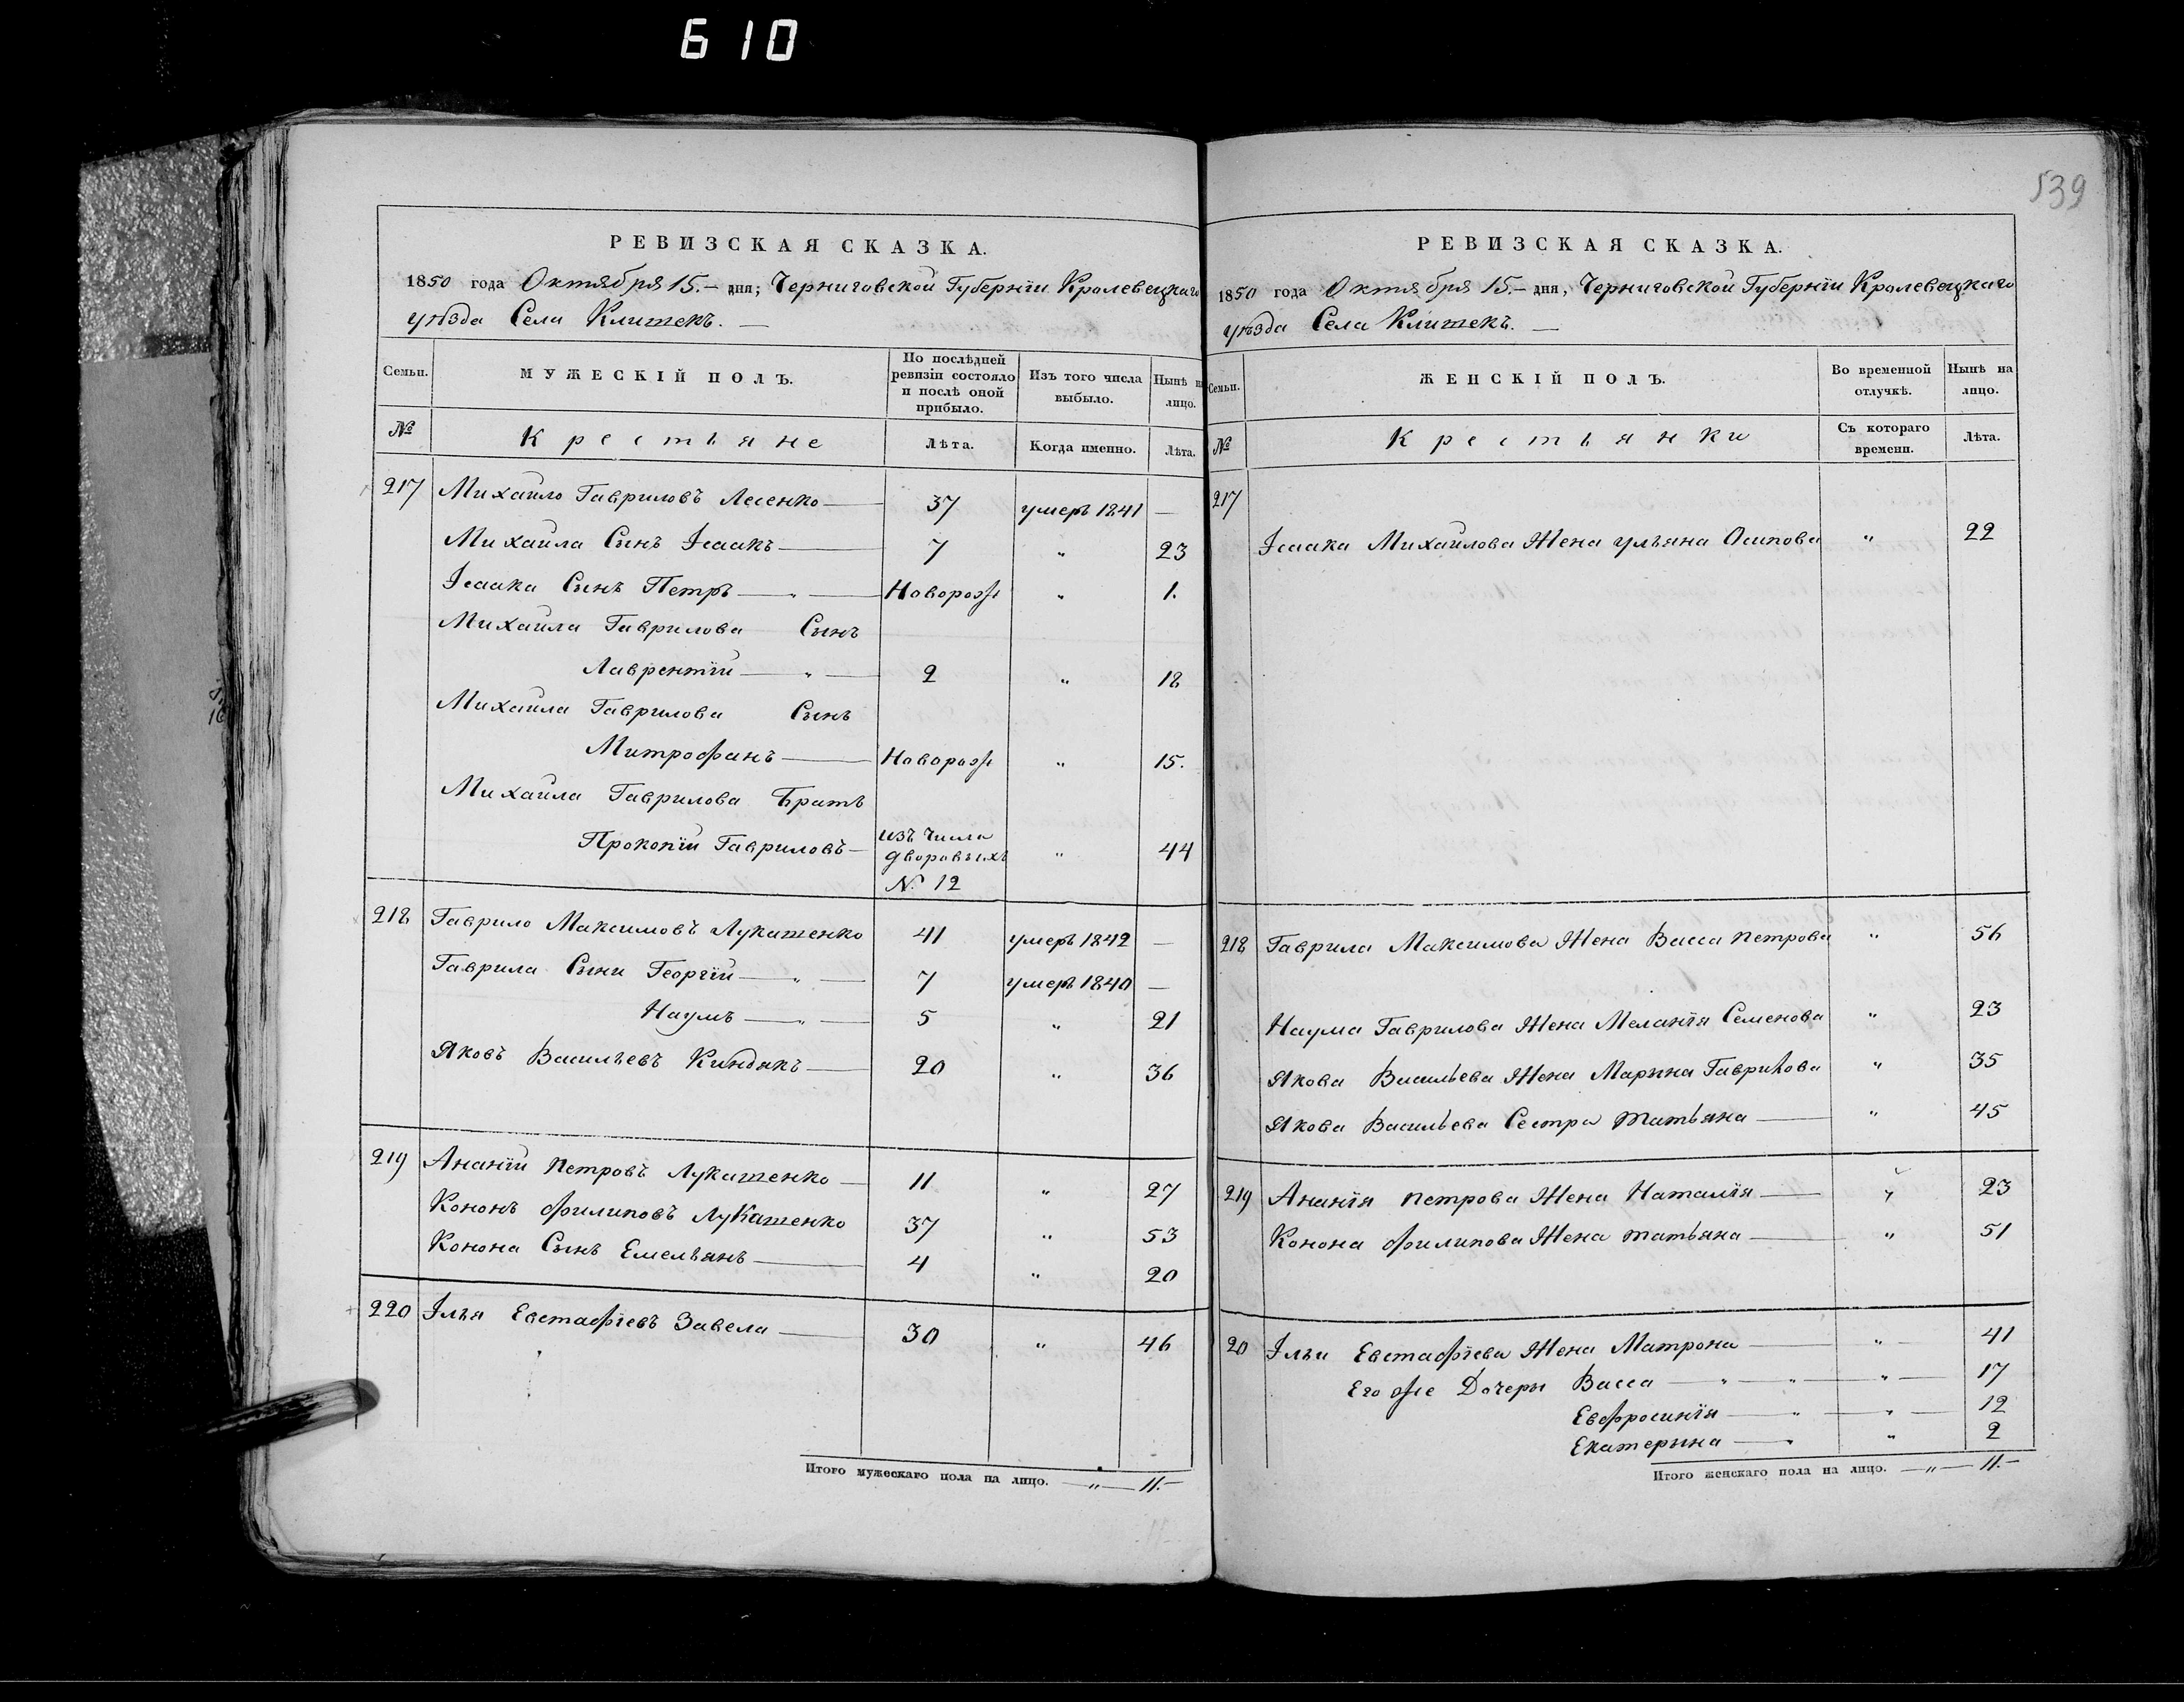 610
539
РЕВИЗСКАЯ СКАЗКА.
1850 года Октября 15.– дня, Черниговской Губернїи Кролевецкаго
уѣзда Села Клишекъ. —
Семьи.
МУЖЕСКІЙ ПОЛЪ.
По послѣдней ревизіи состояло и послѣ оной прибыло.
Изъ того числа выбыло.
Нынѣ на лицо.
№
Крестьяне
Лѣта.
Когда именно.
Лѣта.
217 Михайло Гавриловъ Лесенко — 37 умеръ 1841 —
Михайла Сынъ Ісаакъ — 7 " 23
Ісаака Сынъ Петръ — " — Новорож " 1.
Михайла Гаврилова Сынъ
Лаврентїй — " — 2 " 18
Михайла Гаврилова Сынъ
Митрофанъ — Новорож " 15.
Михайла Гаврилова Братъ
Прокопїй Гавриловъ — изъ числа дворовыхъ № 12 " 44
218 Гаврило Максимовъ Лукашенко 41 умеръ 1842 —
Гаврила Сыни Георгїй — " — 7 умеръ 1840 —
Наумъ — " — 5 " 21
Яковъ Васильевъ Киндякъ — 20 " 36
219 Ананїй Петровъ Лукашенко — 11 " 27
Кононъ Филиповъ Лукашенко 37 " 53
Конона Сынъ Емельянъ — 4 " 20
220 Ілья Евстафїевъ Завела — 30 " 46
Итого мужескаго пола на лицо. — " — 11.–
РЕВИЗСКАЯ СКАЗКА.
1850 года Октября 15.– дня, Черниговской Губернїи Кролевецкаго
уѣзда Села Клишекъ. —
Семьи.
ЖЕНСКІЙ ПОЛЪ.
Во временной отлучкѣ.
Нынѣ на лицо.
№
Крестьянки
Съ котораго времени.
Лѣта.
217
Ісаака Михайлова Жена Ульяна Осипова " 22
218 Гаврила Максимова Жена Васса Петрова " 56
Наума Гаврилова Жена Меланїя Семенова " 23
Якова Васильева Жена Марына Гаврилова " 35
Якова Васильева Сестра Татьяна — " 45
219 Ананїя Петрова Жена Наталїя — " 23
Конона Филипова Жена Татьяна — " 51
20 Ільи Евстафїева Жена Матрона — " — 41
Его же Дочеры Васса — " — " — " — 17
Евфросинїя — " — " — 12
Екатерына — " " 2
Итого женскаго пола на лицо. — " — 11.–